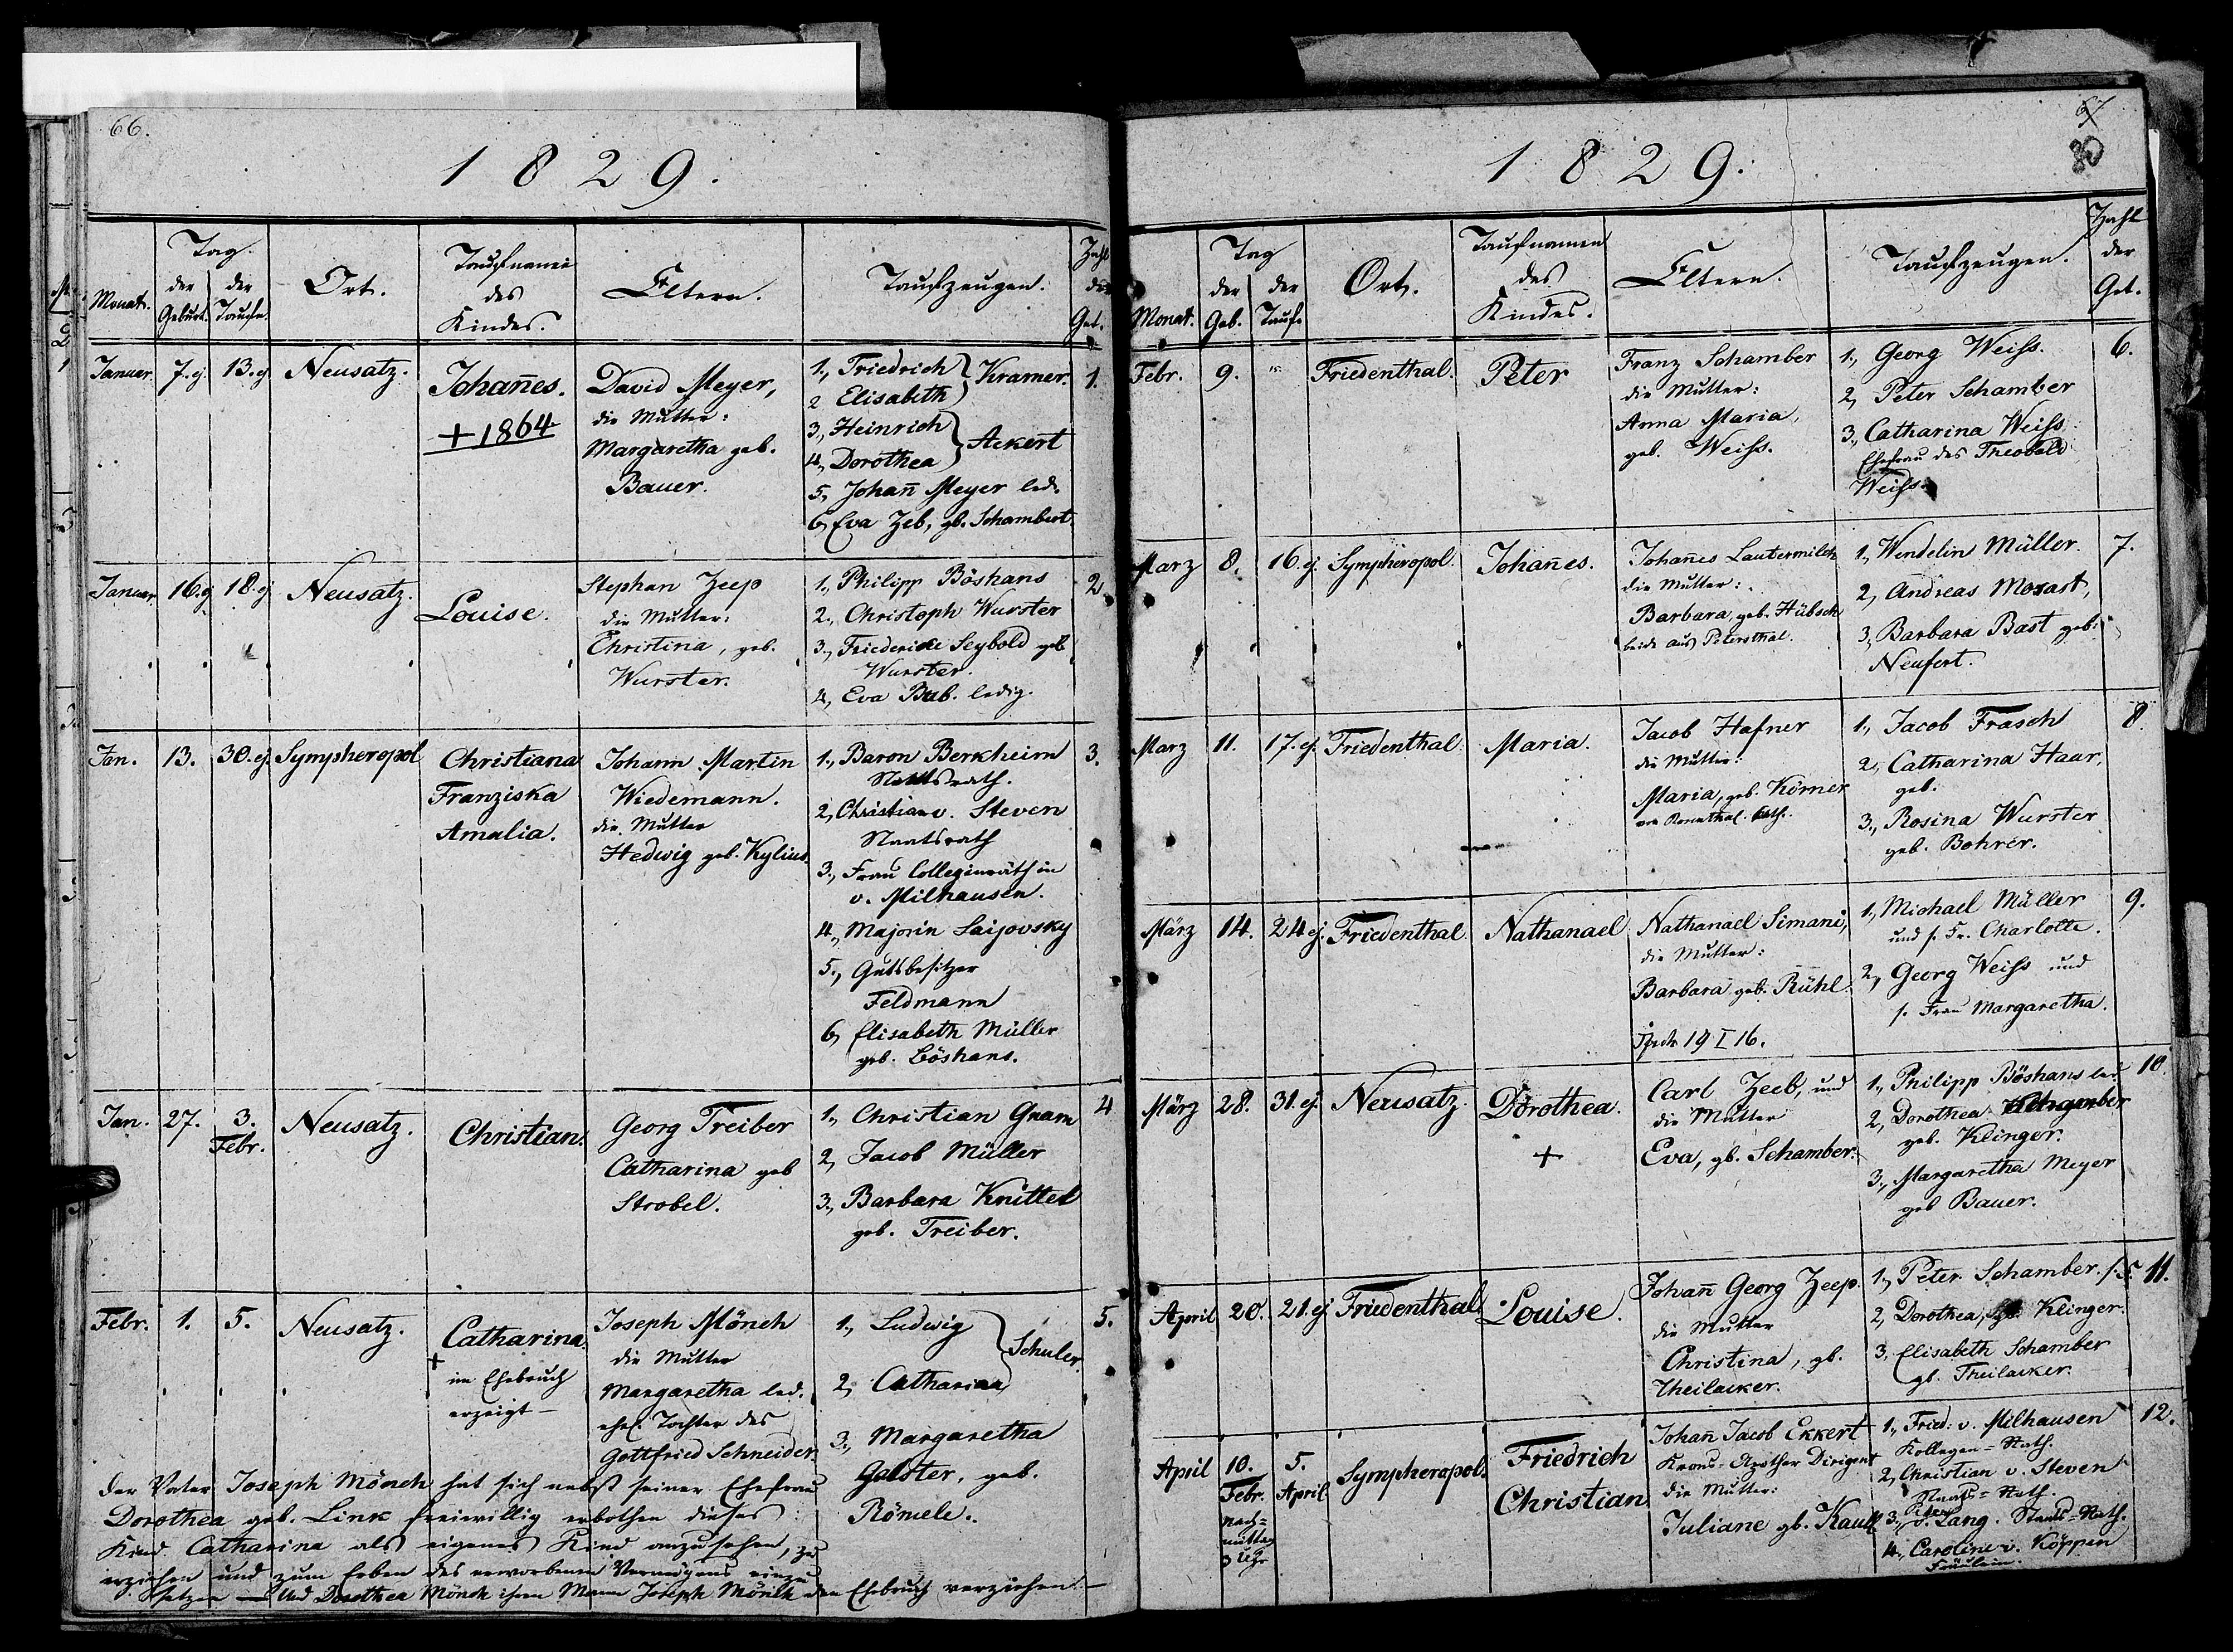 66.
1829.
Monat.
Tag
der Geburt.
der Taufe.
Ort.
Taufname
des
Kindes.
Eltern.
Taufzeugen.
Zahl
der
Get.
Januar. 7. ej. 13. ej. Neusatz.
Johan̄es.
+1864
David Meyer,
die Mutter:
Margaretha geb.
Bauer.
1., Friedrich } Kramer.
2 Elisabeth
3., Heinrich } Ackert
4., Dorothea
5., Johan̄ Meyer led.
6, Eva Zeb, gb. Schambert
1.
Januar. 16. ej 18. ej Neusatz.
Louise.
Stephan Zeep
die Mutter:
Christina, geb.
Wurster.
1., Philipp Böshans
2., Christoph Wurster
3., Friedericke Seybold geb
Wurster.
4, Eva Bub. ledig.
2.
Jan. 13. 30. ej. Sympheropol
Christiana
Franziska
Amalia.
Johann Martin
Wiedemann.
die Mutter
Hedwig geb. Kylius.
1., Baron Berkheim
Staatsrath.
2, Christian v. Steven
Staatsrath
3., Frau Collegienräthin
v. Milhausen.
4., Majorin Saijovsky
5., Gutsbesitzer
Feldmann
6, Elisabeth Müller
geb. Böshans.
3.
Jan. 27. 3.
Febr.
Neusatz.
Christian.
Georg Treiber
Catharina geb
Strobel.
1., Christian Gnam
2, Jacob Müller
3., Barbara Knittel
geb. Treiber.
4
Febr. 1. 5. Neusatz.
Catharina.
+
im Ehebruch
erzeigt—
Joseph Mönch
die Mutter
Margaretha led.
ehel. Tochter des
Gottfried Schneider.
1., Ludwig } Schuler.
2, Catharina
3., Margaretha
Galster, geb.
Römele.
5.
Der Vater Joseph Mönch hat sich nebst seiner Ehefrau
Dorothea geb. Link freiwillig erbothen dieses
Kind Catharina als eigenes Kind anzusehen, zu
erziehen und zum Erben des erworbenen Vermögens einzu
setzen — Und Dorothea Mönch ihrem Mann Joseph Mönch den Ehebruch verziehen.—
67
80
1829.
Monat.
Tag
der Geb.
der Taufe
Ort.
Taufnamen
des
Kindes.
Eltern.
Taufzeugen.
Zahl
der
Get.
Febr. 9. " Friedenthal. Peter
Franz Schamber
die Mutter:
Anna Maria,
geb. Weiss.
1., Georg Weiss.
2, Peter Schamber
3., Catharina Weiss
Ehefrau des Theobald
Weiss.
6.
Marz 8. 16. ej. Sympheropol. Johan̄es.
Johan̄es Lautermilch
die Mutter:
Barbara, geb. Hübsch
beide aus Petersthal.
1., Wendelin Müller.
2, Andreas Mozart,
3., Barbara Bast geb.
Neufert.
7.
Marz 11. 17. ej. Friedenthal. Maria.
Jacob Hafner
die Mutter:
Maria, geb. Körner
von Rosenthal. kath.
1., Jacob Frasch
2, Catharina Haar,
geb.
3., Rosina Wurster
geb. Bohrer.
8.
März 14. 24 ej. Friedenthal. Nathanael
Nathanael Simani,
die Mutter:
Barbara geb. Rühl
19 I 16.
1., Michael Müller
und s. Fr. Charlotte.
2, Georg Weiss und
s. Frau Margaretha.
9.
März 28. 31. ej. Neusatz. Dorothea.
+
Carl Zeeb, und
die Mutter
Eva, gb. Schamber.
1., Philipp Böshans led
2, Dorothea
geb. Klinger.
3., Margaretha Meyer
geb Bauer.
10.
April 20. 21. ej Friedenthal. Louise.
Johan̄ Georg Zeep.
die Mutter
Christina, gb.
Theilacker.
1., Peter Schamber.
2, Dorothea, gb. Klinger.
3, Elisabeth Schamber
gb. Theilacker.
11.
April 10.
Febr.
nach=
mittag
3 Uhr
5.
April
Sympheropol.
Friedrich
Christian
Johan̄ Jacob Ekkert
Krons-Apother Dirigent
die Mutter:
Juliane gb. Kauff
1., Fried: v. Milhausen
Kollegen=Rath.
2, Christian v. Steven
Staats=Rath.
3., v. Lang. Staats=Rath.
4., Caroline v. Köppen
Fräulein.
12.